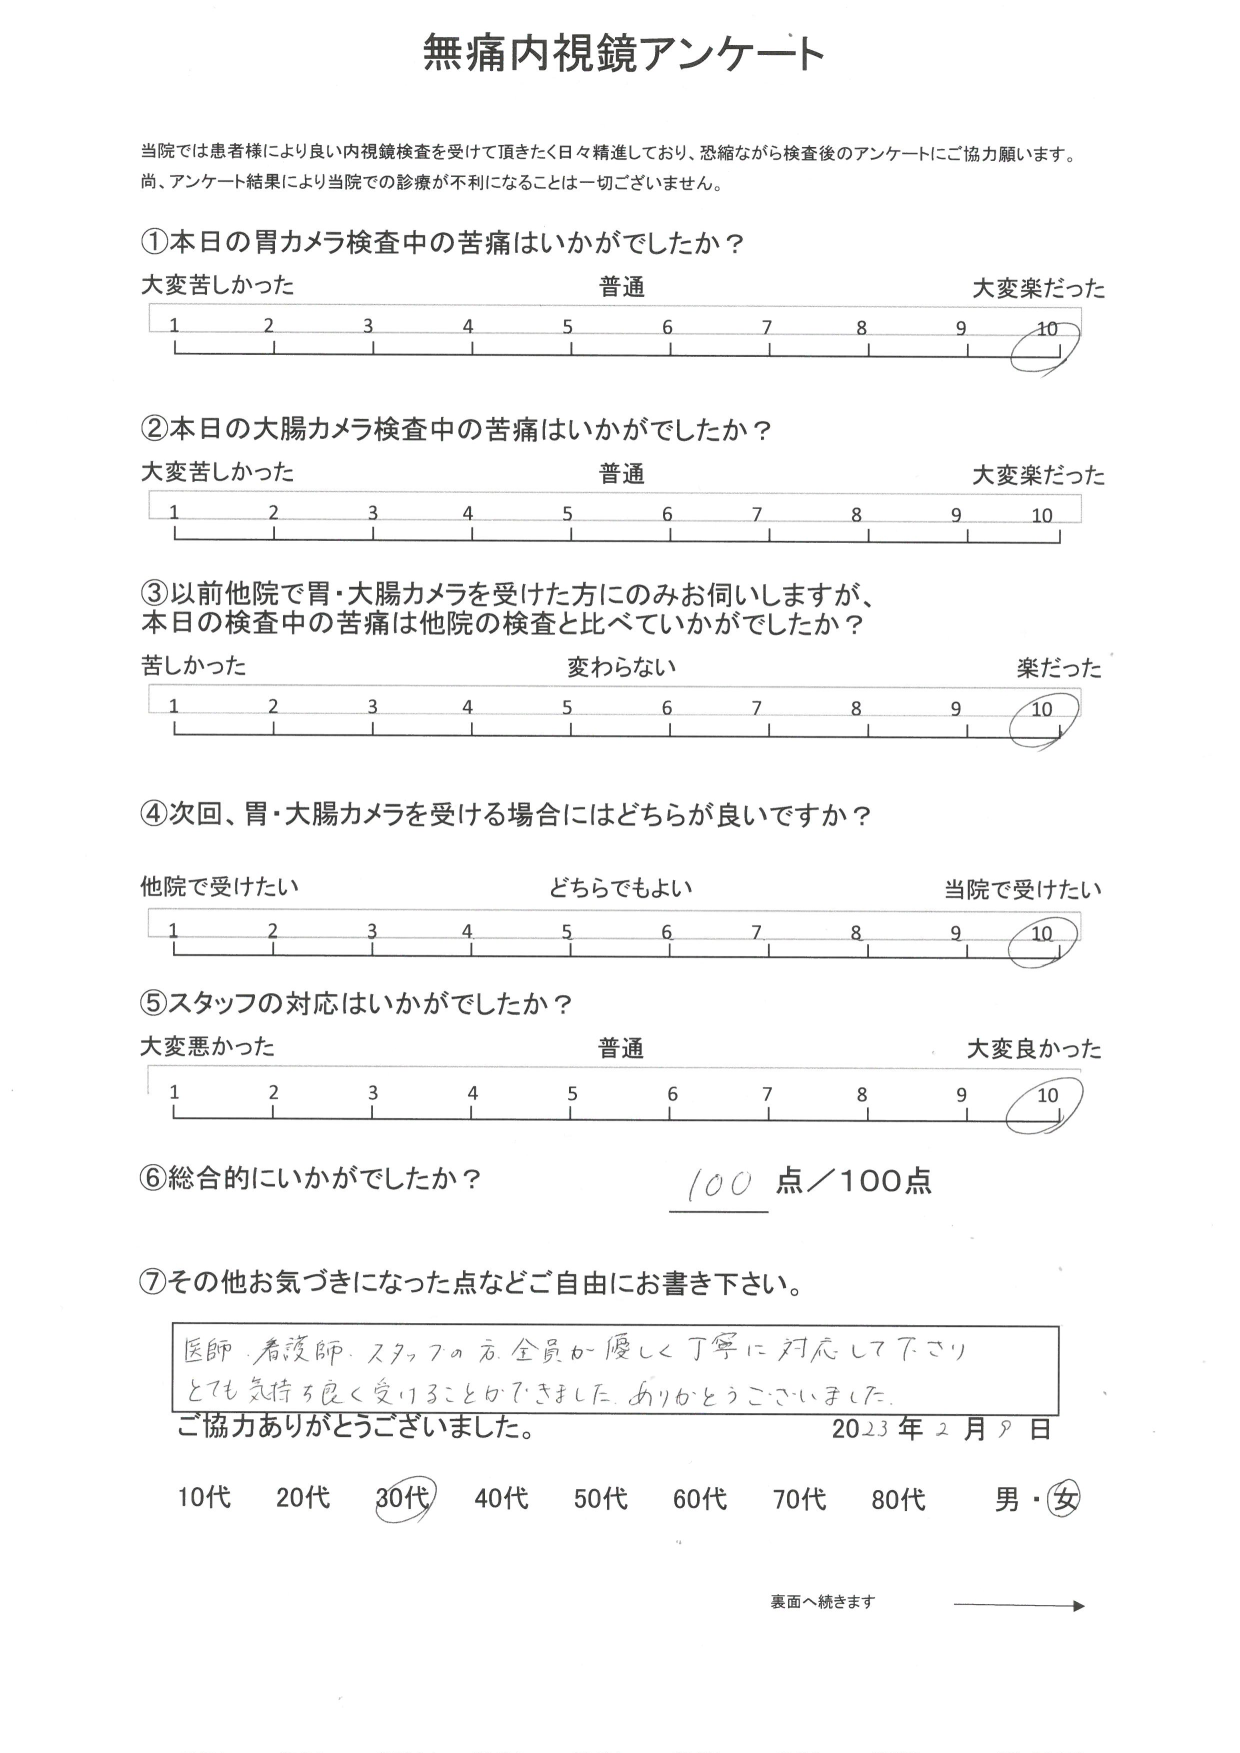 無痛内視鏡アンケート
当院では患者様により良い内視鏡検査を受けて頂きたく日々精進しており、恐縮ながら検査後のアンケートにご協力願います。
尚、アンケート結果により当院での診療が不利になることは一切ございません。
①本日の胃カメラ検査中の苦痛はいかがでしたか？
大変苦しかった 普通 大変楽だった
1 2 3 4 5 6 7 8 9 10
②本日の大腸カメラ検査中の苦痛はいかがでしたか？
大変苦しかった 普通 大変楽だった
1 2 3 4 5 6 7 8 9 10
③以前他院で胃・大腸カメラを受けた方にのみお伺いしますが、
本日の検査中の苦痛は他院の検査と比べていかがでしたか？
苦しかった 変わらない 楽だった
1 2 3 4 5 6 7 8 9 10
④次回、胃・大腸カメラを受ける場合にはどちらが良いですか？
他院で受けたい どちらでもよい 当院で受けたい
1 2 3 4 5 6 7 8 9 10
⑤スタッフの対応はいかがでしたか？
大変悪かった 普通 大変良かった
1 2 3 4 5 6 7 8 9 10
⑥総合的にいかがでしたか？ 100 点／100点
⑦その他お気づきになった点などご自由にお書き下さい。
医師．看護師．スタッフの方．全員が優しく丁寧に対応して下さり
とても気持ち良く受けることができました．ありがとうございました．
ご協力ありがとうございました。 2023年 2 月 9 日
10代 20代 30代 40代 50代 60代 70代 80代 男・女
裏面へ続きます